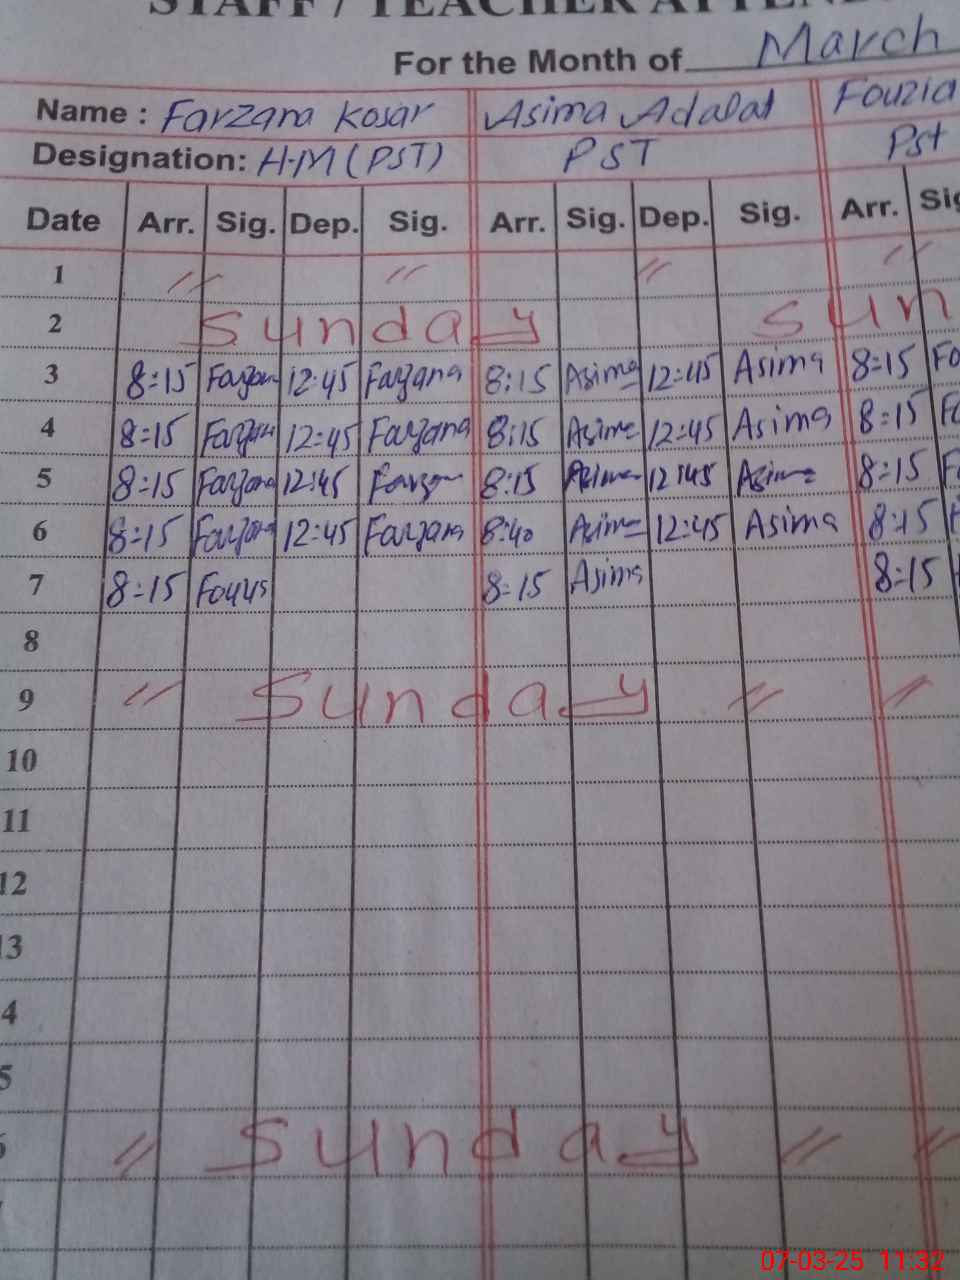 STAFF / TEACHER ATTEN
For the Month of March
Name : Farzana Kosar Asima Adalat Fouzia
Designation: H-M (PST) PST Pst
Date Arr. Sig. Dep. Sig. Arr. Sig. Dep. Sig. Arr. Sig
1 〃 〃 〃 〃
2 Sunday Sun
3 8:15 Farzana 12:45 Farzana 8:15 Asima 12:45 Asima 8:15 Fo
4 8:15 Farzana 12:45 Farzana 8:15 Asima 12:45 Asima 8:15 Fo
5 8:15 Farzana 12:45 Farzana 8:15 Asima 12:45 Asima 8:15 F
6 8:15 Farzana 12:45 Farzana 8:40 Asima 12:45 Asima 8:15
7 8:15 8:15 Asima 8:15
8
9 〃 Sunday 〃 〃
10
11
12
13
4
5
6 〃 Sunday 〃 〃
07-03-25 11:32